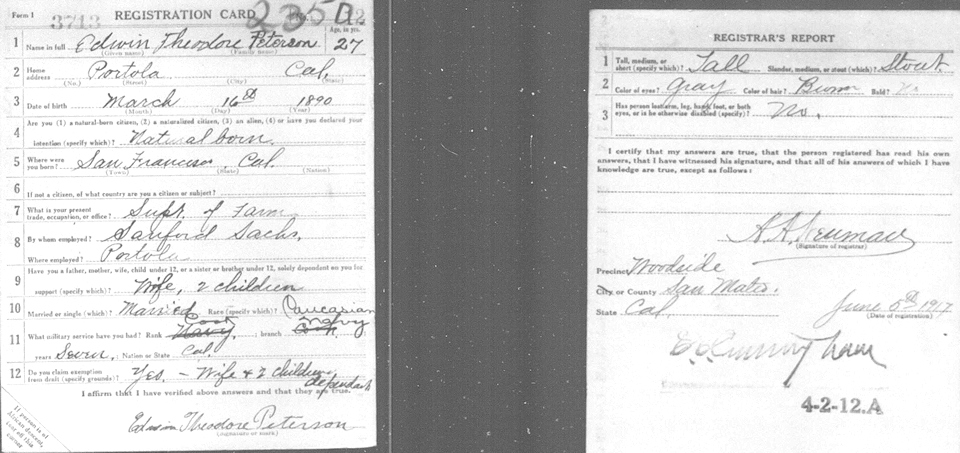 Form 1
3713
REGISTRATION CARD
No.
235
12
1 Name in full Edwin Theodore Peterson
(Given name) (Family name)
Age, in yrs. 27
2 Home address Portola Cal.
(No.) (Street) (City) (State)
3 Date of birth March 16th 1890
(Month) (Day) (Year)
4 Are you (1) a natural-born citizen, (2) a naturalized citizen, (3) an alien, (4) or have you declared your
intention (specify which)? Natural born.
5 Where were you born? San Francisco, Cal.
(Town) (State) (Nation)
6 If not a citizen, of what country are you a citizen or subject?
7 What is your present trade, occupation, or office? Supt. of Farm
8 By whom employed? Sanford Sachs,
Where employed? Portola
9 Have you a father, mother, wife, child under 12, or a sister or brother under 12, solely dependent on you for
support (specify which)? Wife, 2 children
10 Married or single (which)? Married Race (specify which)? Caucasian
11 What military service have you had? Rank Cook Navy, ; branch Navy Cook
years Seven; Nation or State Cal
12 Do you claim exemption from draft (specify grounds)? Yes, - Wife & 2 children dependant
I affirm that I have verified above answers and that they are true.
Edwin Theodore Peterson
(Signature or mark)
If person is of
African descent,
corner
REGISTRAR'S REPORT
1 Tall, medium, or short (specify which)? Tall Slender, medium, or stout (which)? Stout
2 Color of eyes? Gray Color of hair? Brown Bald? No
3 Has person lost arm, leg, hand, foot, or both
eyes, or is he otherwise disabled (specify)? No.
I certify that my answers are true, that the person registered has read his own
answers, that I have witnessed his signature, and that all of his answers of which I
have knowledge are true, except as follows:
(Signature of registrar)
Precinct Woodside
City or County San Mateo.
State Cal. June 5th 1917
(Date of registration)
4-2-12.A